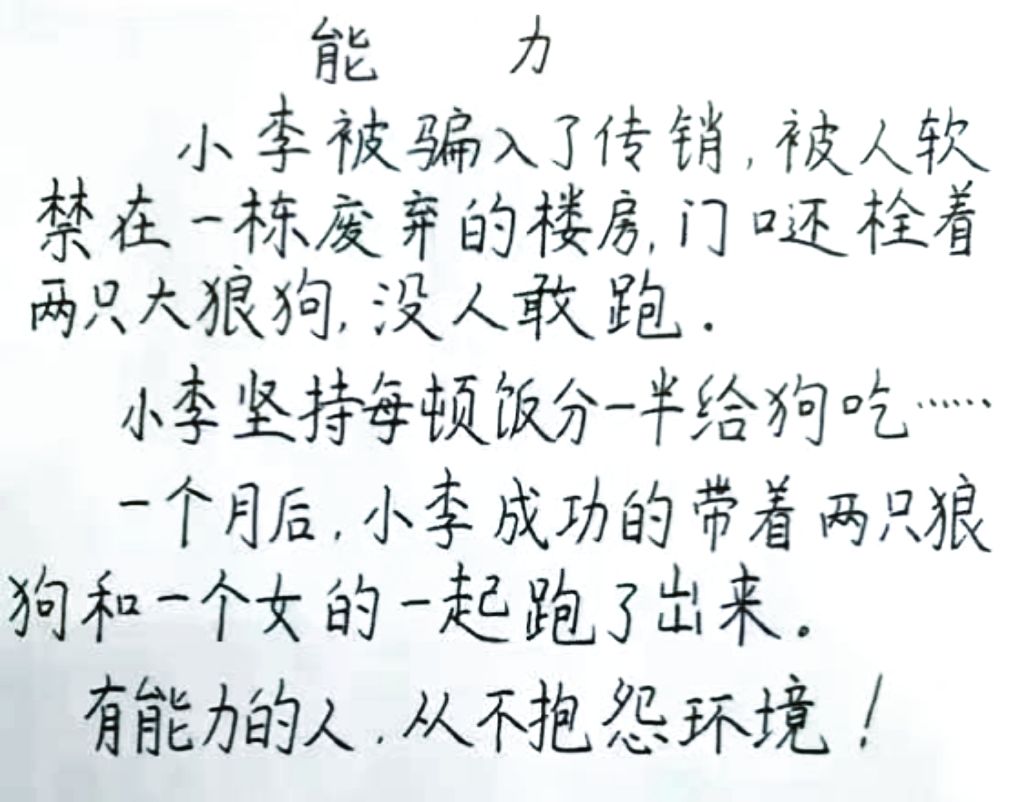 能 力
小李被骗入了传销,被人软
禁在一栋废弃的楼房,门口还栓着
两只大狼狗,没人敢跑.
小李坚持每顿饭分一半给狗吃……
一个月后,小李成功的带着两只狼
狗和一个女的一起跑了出来。
有能力的人,从不抱怨环境!